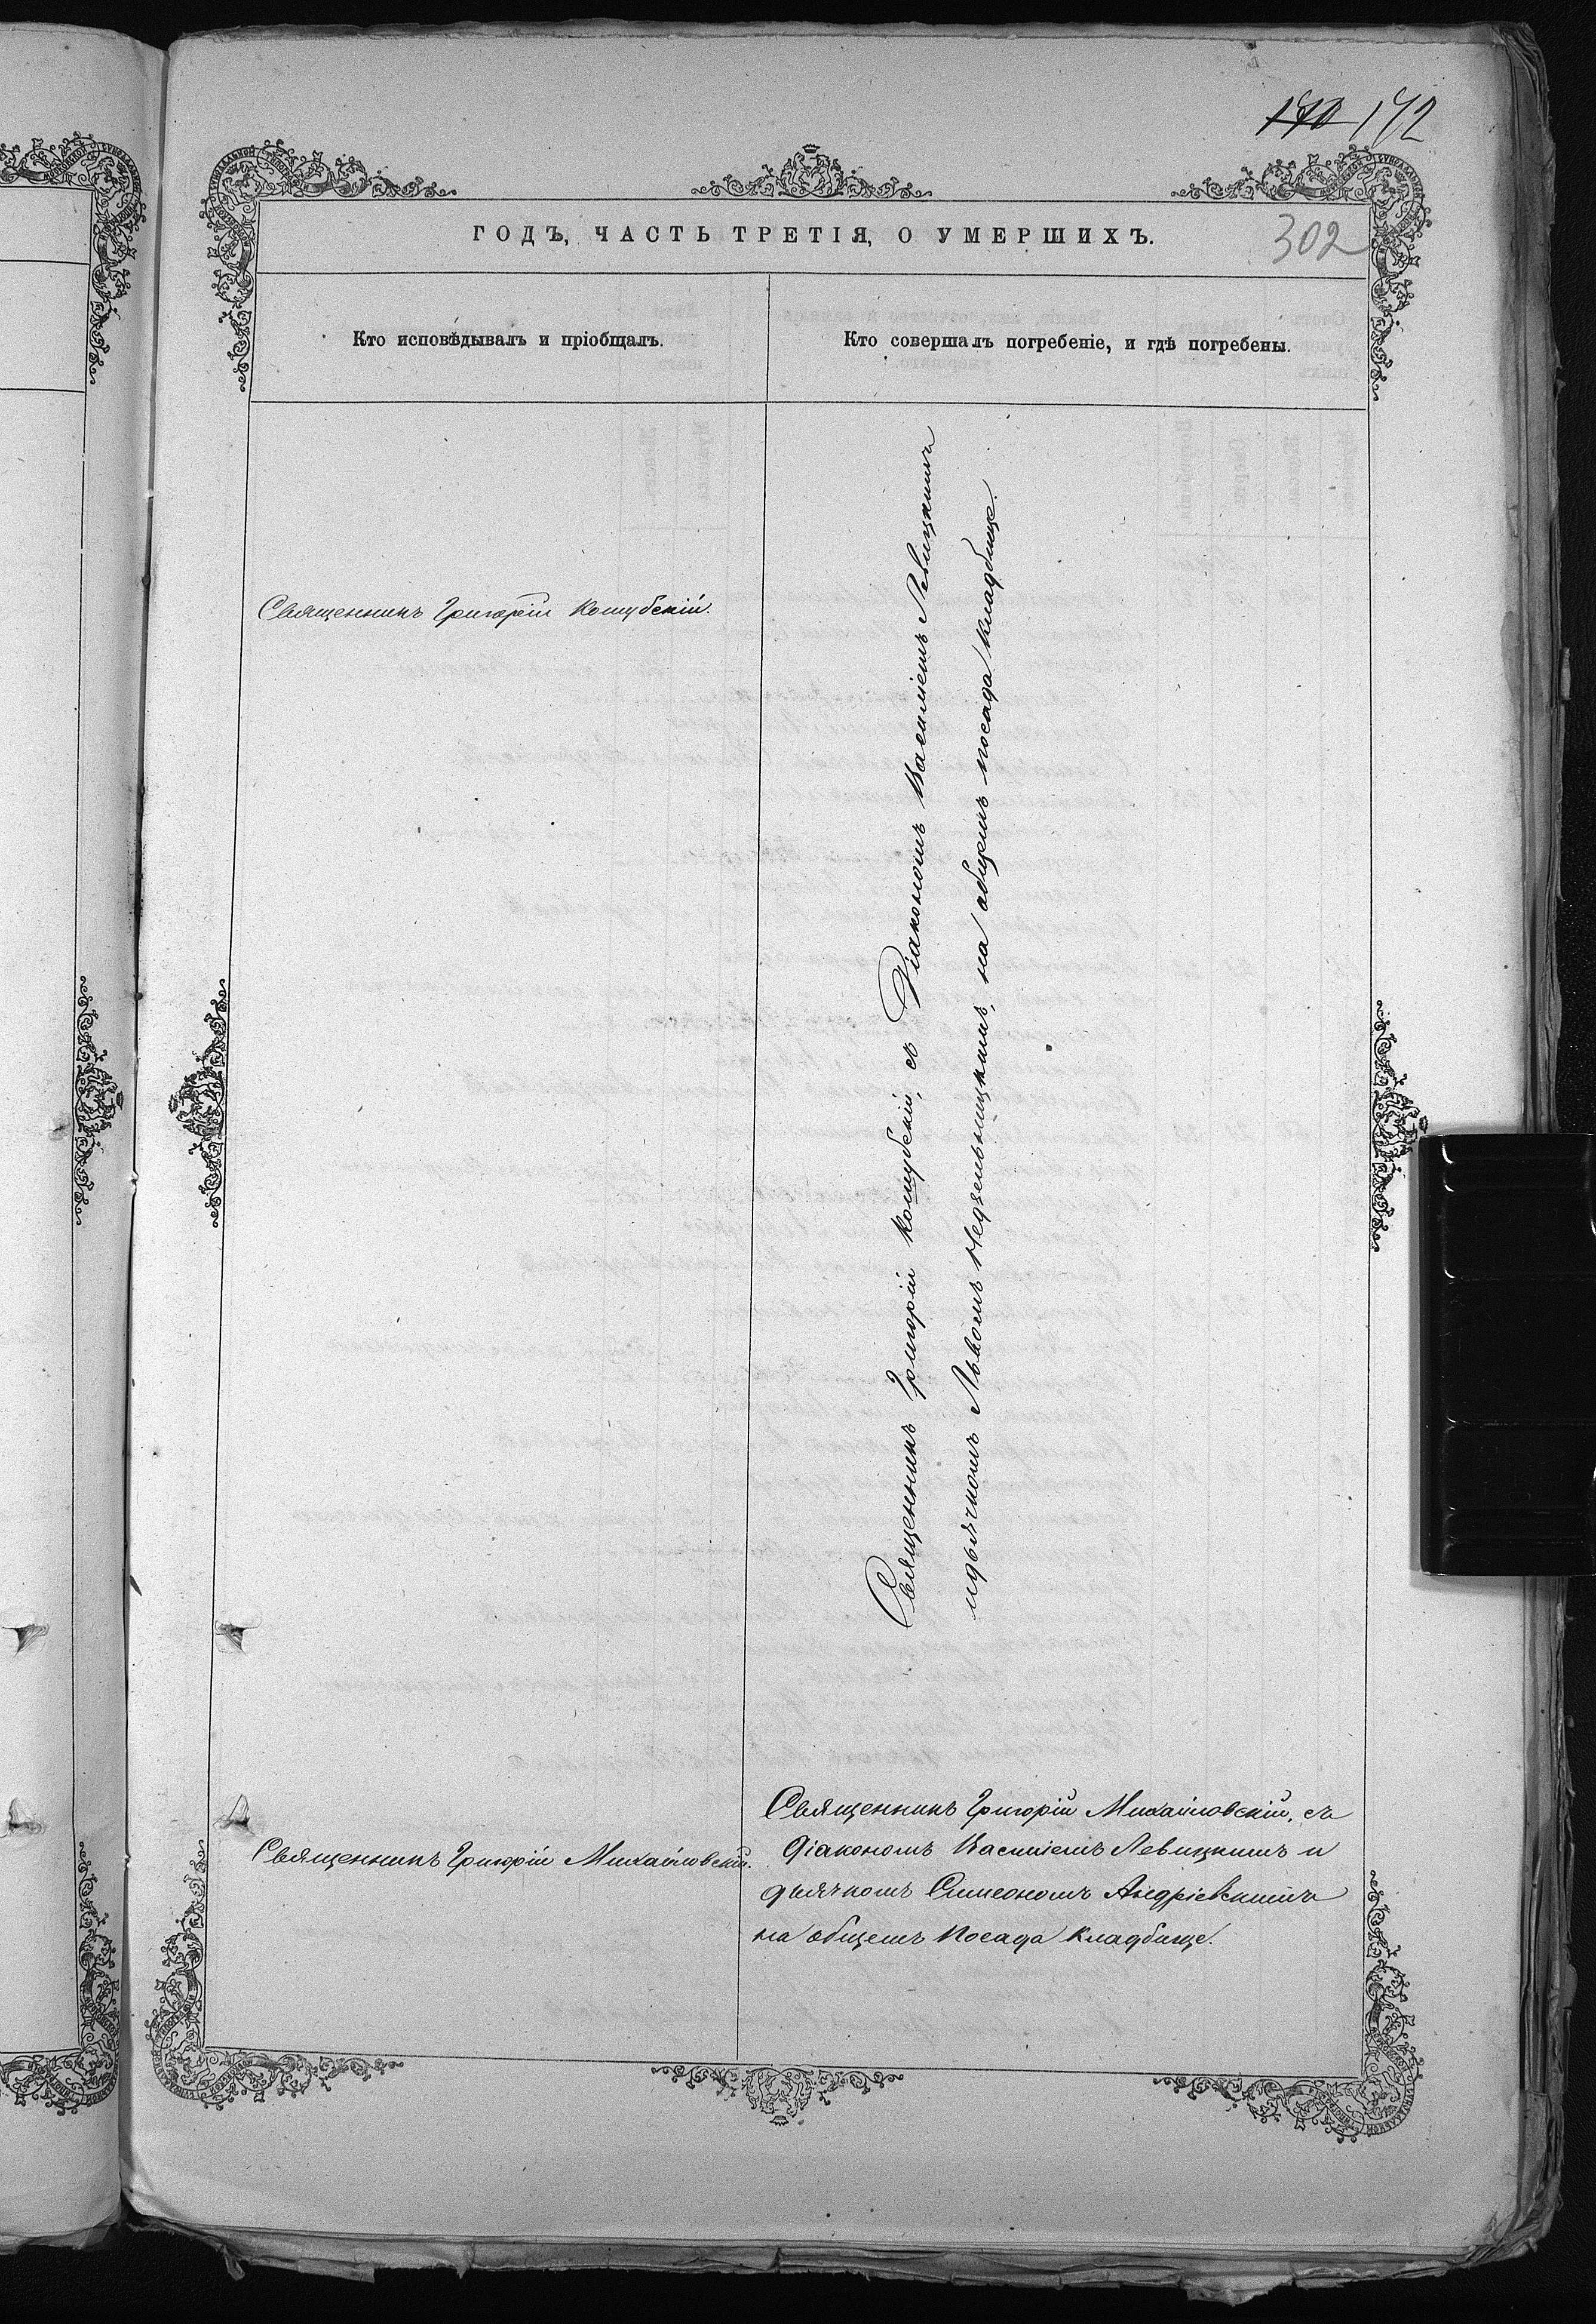 170 172
ГОДЪ, ЧАСТЬ ТРЕТІЯ, О УМЕРШИХЪ.
302
Кто исповѣдывалъ и пріобщалъ.
Кто совершалъ погребеніе, и гдѣ погребены.
Священникъ Григорій Коцубскій.
Священникъ Григорій Коцубскій, съ Діакономъ Василіемъ Левицкимъ
и дьячкомъ Львомъ Недзельницкимъ, на общемъ посада кладбище.
Священникъ Григорій Михайловскій.
Священникъ Григорій Михайловскій, съ
Діакономъ Василіемъ Левицкимъ и
дьячкомъ Симеономъ Андріевскимъ
на общемъ посада кладбище.